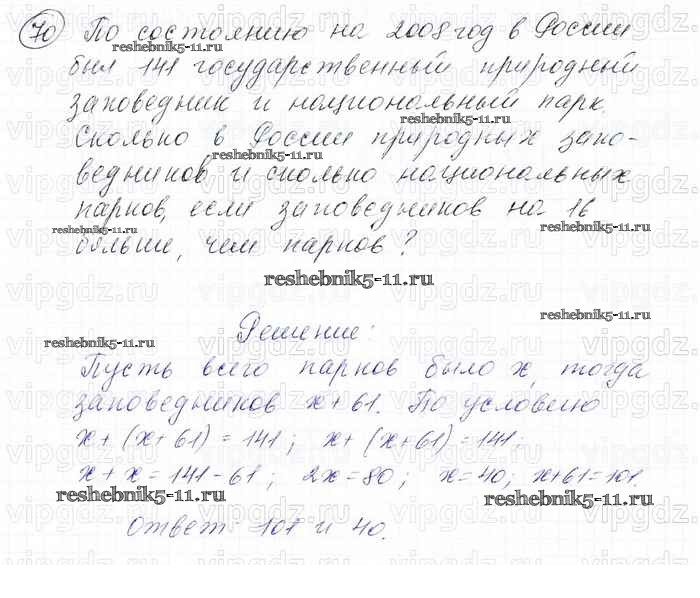 70 По состоянию на 2008 год в России
reshebnik5-11.ru
был 141 государственный природный
заповедник и национальный парк.
reshebnik5-11.ru
Сколько в России природных запо-
reshebnik5-11.ru
ведников и сколько национальных
парков, если заповедников на 16
reshebnik5-11.ru reshebnik5-11.ru
больше, чем парков?
reshebnik5-11.ru
Решение:
reshebnik5-11.ru
reshebnik5-11.ru
Пусть всего парков было x, тогда
заповедников x+61. По условию
x+(x+61)=141; x+(x+61)=141;
x+x=141-61; 2x=80; x=40; x+61=101.
reshebnik5-11.ru reshebnik5-11.ru
Ответ: 101 и 40.